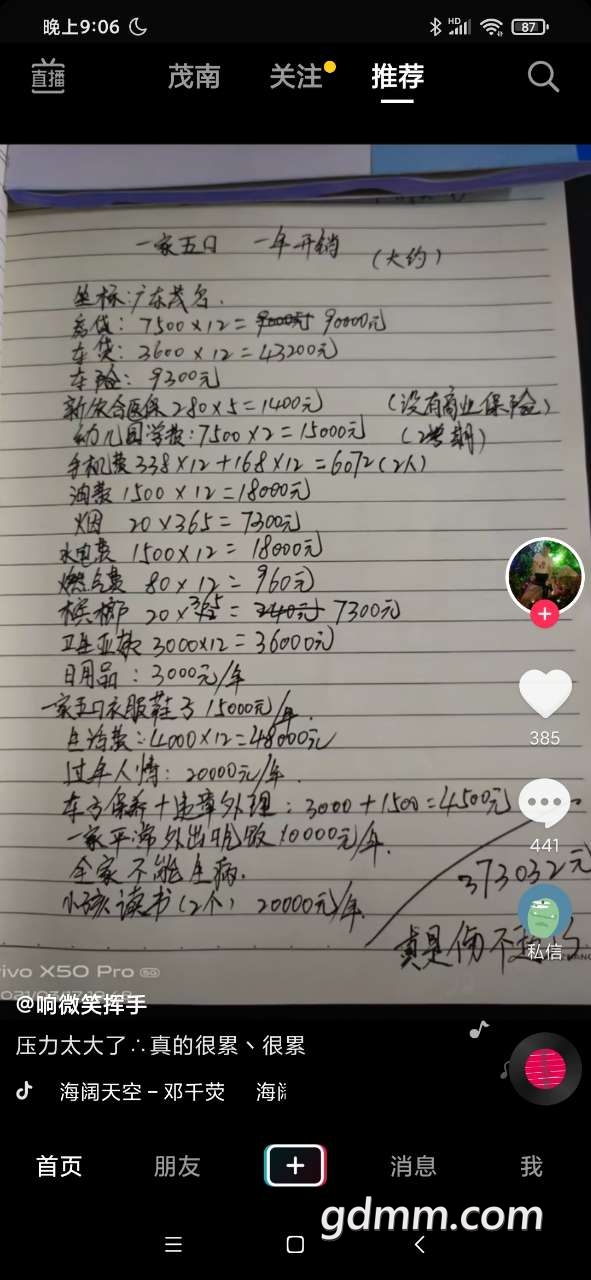 晚上9:06
HD
87
直播
茂南
关注
推荐
一家五口 一年开销 (大约)
坐标:广东茂名.
房贷: 7500×12= 9000元 90000元
车贷: 3600×12=43200元
车险: 9300元
新农合医保280×5=1400元 (没有商业保险)
幼儿园学费:7500×2=15000元 (2学期)
手机费 338×12+168×12=6072(2人)
油费 1500×12=18000元
烟 20×365=7300元
水电费 1500×12= 18000元
燃气费 80×12= 960元
槟榔 20×365= 240元 7300元
3000×12=36000元
日用品: 3000元/年
一家五口衣服鞋子 15000元/年.
生活费:4000×12=48000元
过年人情: 20000元/年.
车子保养+违章处理: 3000+1500=4500元
一家平常外出吃饭 10000元/年.
全家不能生病.
小孩读书(2个) 20000元/年.
373032元
真是伤不起
vivo X50 Pro 5G
385
441
私信
@响微笑挥手
压力太大了∴真的很累丶很累
海阔天空-邓千荧 海阔
首页
朋友
消息
我
gdmm.com